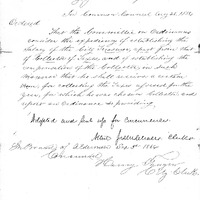 In Common Council Aug 21. 1882
Ordered
That the Committee on Ordinances
consider the expediency of establishing the
Salary of the City Treasurer apart from that
of Collector of Taxes, and of establishing the
compensation of the Collector on such
that he shall receive a certain
sum, for collecting the Taxes of
year, for which he was chosen Collector and
report an Ordinance so providing.
Adopted and sent up for Concurrence.
Attest Clerk
In Board of Aldermen 1882
Concurred
Henry
City Clerk